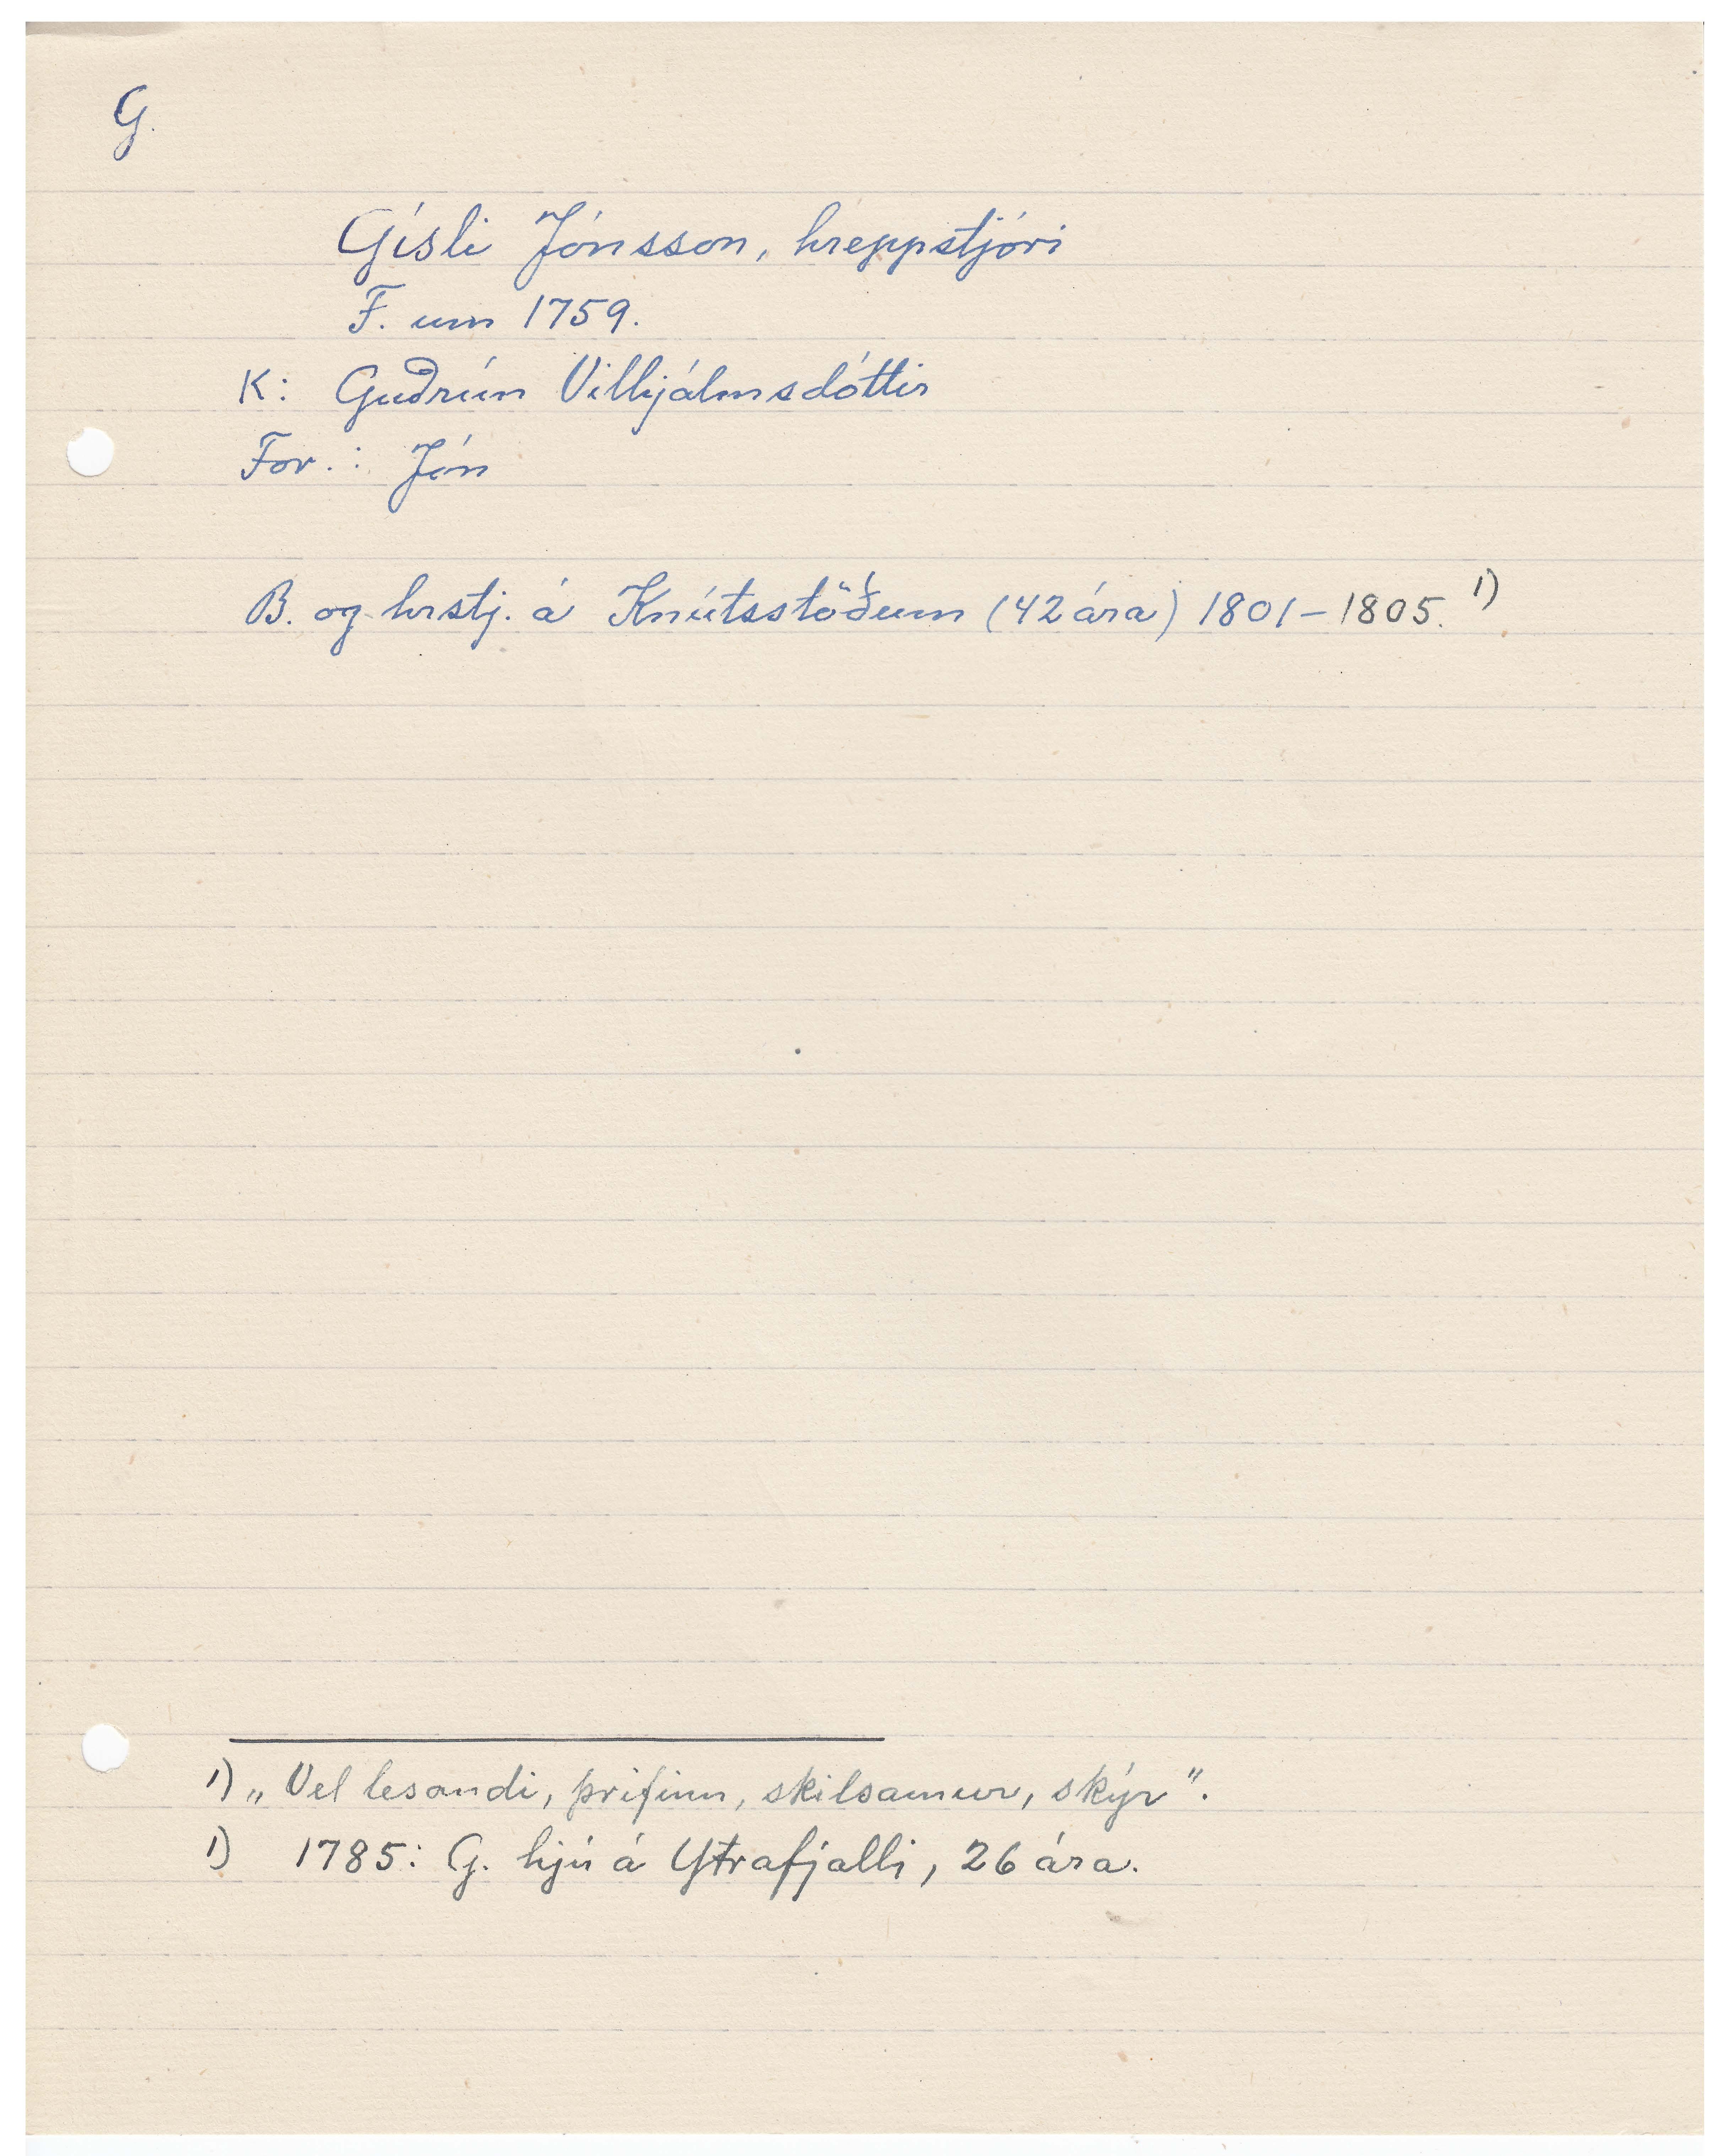 G.
Gísli Jónsson, hreppstjóri
F. um 1759.
K: Guðrún Vilhjálmsdóttir
For.: Jón
B. og hrstj. á Knútsstöðum (42 ára) 1801-1805. 1)
1) „Vel lesandi, þrifinn, skilsamur, skýr".
1) 1785: G. hjú á Ytrafjalli, 26 ára.